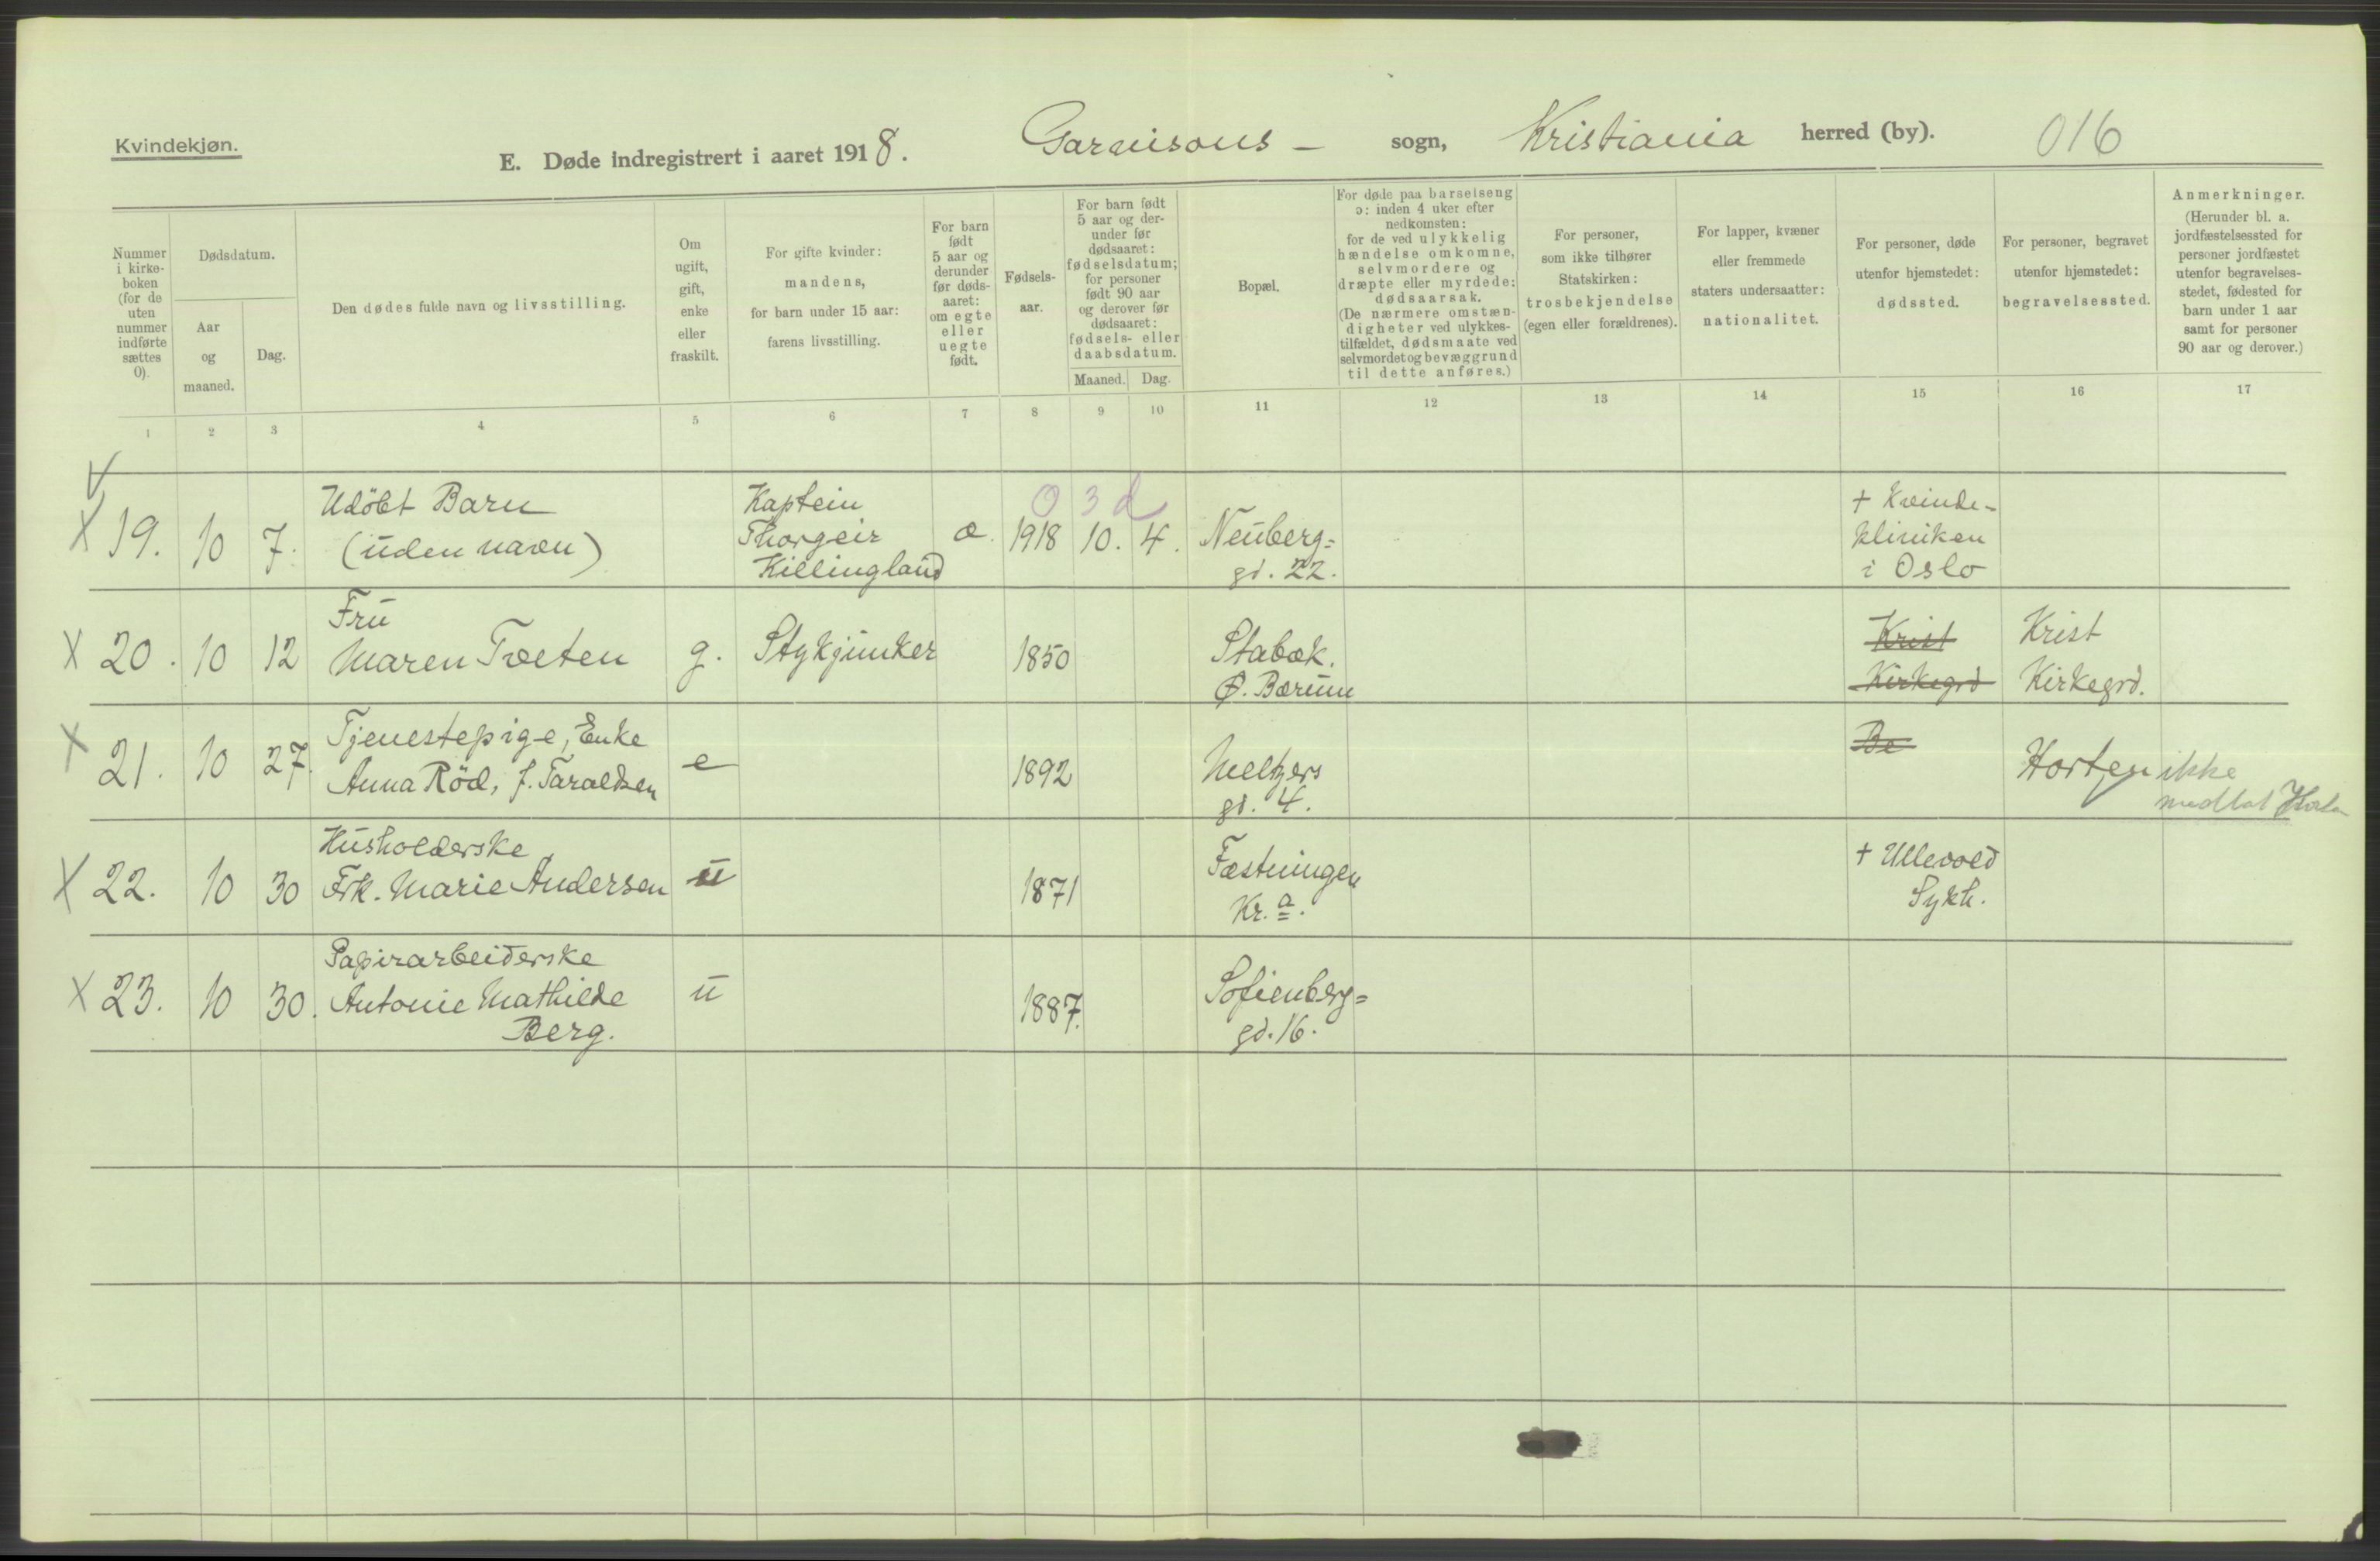 Kvindekjøn.
E. Døde indregistrert i aaret 1918. Garnisons - sogn, Kristiania herred (by). 016
Nummer
i kirke-
boken
(for de
uten
nummer
indførte
sættes
0).
Dødsdatum.
Aar
og
maaned.
Dag.
Den dødes fulde navn og livsstilling.
Om
ugift,
gift,
enke
eller
fraskilt.
For gifte kvinder:
mandens,
for barn under 15 aar:
farens livsstilling.
For barn
født
5 aar og
derunder
før døds-
aaret:
om egte
eller
uegte
født.
Fødsels-
aar.
For barn født
5 aar og der-
under før
dødsaaret:
fødselsdatum;
for personer
født 90 aar
og derover før
dødsaaret:
fødsels- eller
daabsdatum.
Maaned. Dag.
Bopæl.
For døde paa barselseng
ɔ: inden 4 uker efter
nedkomsten:
for de ved ulykkelig
hændelse omkomne,
selvmordere og
dræpte eller myrdede:
dødsaarsak.
(De nærmere omstæn-
digheter ved ulykkes-
tilfældet, dødsmaate ved
selvmordet og bevæggrund
til dette anføres.)
For personer,
som ikke tilhører
Statskirken:
trosbekjendelse
(egen eller forældrenes).
For lapper, kvæner
eller fremmede
staters undersaatter:
nationalitet.
For personer, døde
utenfor hjemstedet:
dødssted.
For personer, begravet
utenfor hjemstedet:
begravelsessted.
Anmerkninger.
(Herunder bl. a.
jordfæstelsessted for
personer jordfæstet
utenfor begravelses-
stedet, fødested for
barn under 1 aar
samt for personer
90 aar og derover.)
1 2 3 4 5 6 7 8 9 10 11 12 13 14 15 16 17
X 19. 10 7.
Udöbt Barn
(uden navn)
Kaptein
Thorgeir
Killingland
æ.
0 3 d
1918 10. 4.
Neuberg=
gd. 22.
+ Kvinde-
kliniken
i Oslo
X 20. 10 12
Fru
Maren Tveten
g. Stykjunker 1850
Stabæk.
Ø. Bærum
Krist
Kirkegrd
Krist
Kirkegrd.
X 21. 10 27.
Tjenestepige, Enke
Anna Röd, f. Taraldsen
e 1892
Meltzers
gd. 4.
Be
Horten
ikke
X 22. 10 30
Husholderske
Frk. Marie Andersen
u 1871
Fæstningen
Kr.a.
+ Ullevold
Sykh.
X 23. 10 30.
Papirarbeiderske
Antonie Mathilde
Berg.
u 1887.
Sofienberg=
gd. 16.